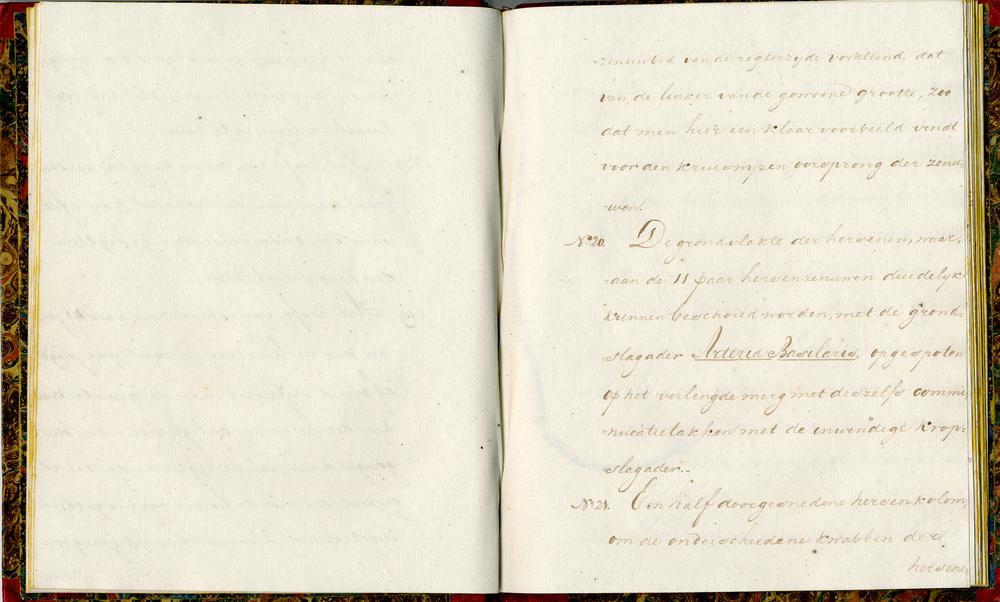 zenuwbed van de regterzyde verkleind, dat
van de linker van de gewoone grootte, zoo
dat men hier een klaar voorbeeld vindt
voor den kruiompen oorsprong der zenu-
wen.
N°20. De grondvlakte der hersenen, waar,
aan de 11 paar hersenzenuwen duidelyk
kunnen beschoud worden, met de grond-
slagader Arteria Basilaris, opgespoten
op het verlengde merg met deszelfs commu,
nicatie takken met de inwendige krop-
slagader.-
N°21. Een half doorgesnedene hersenkolom,
om de onderscheidene kwabben der
hersene